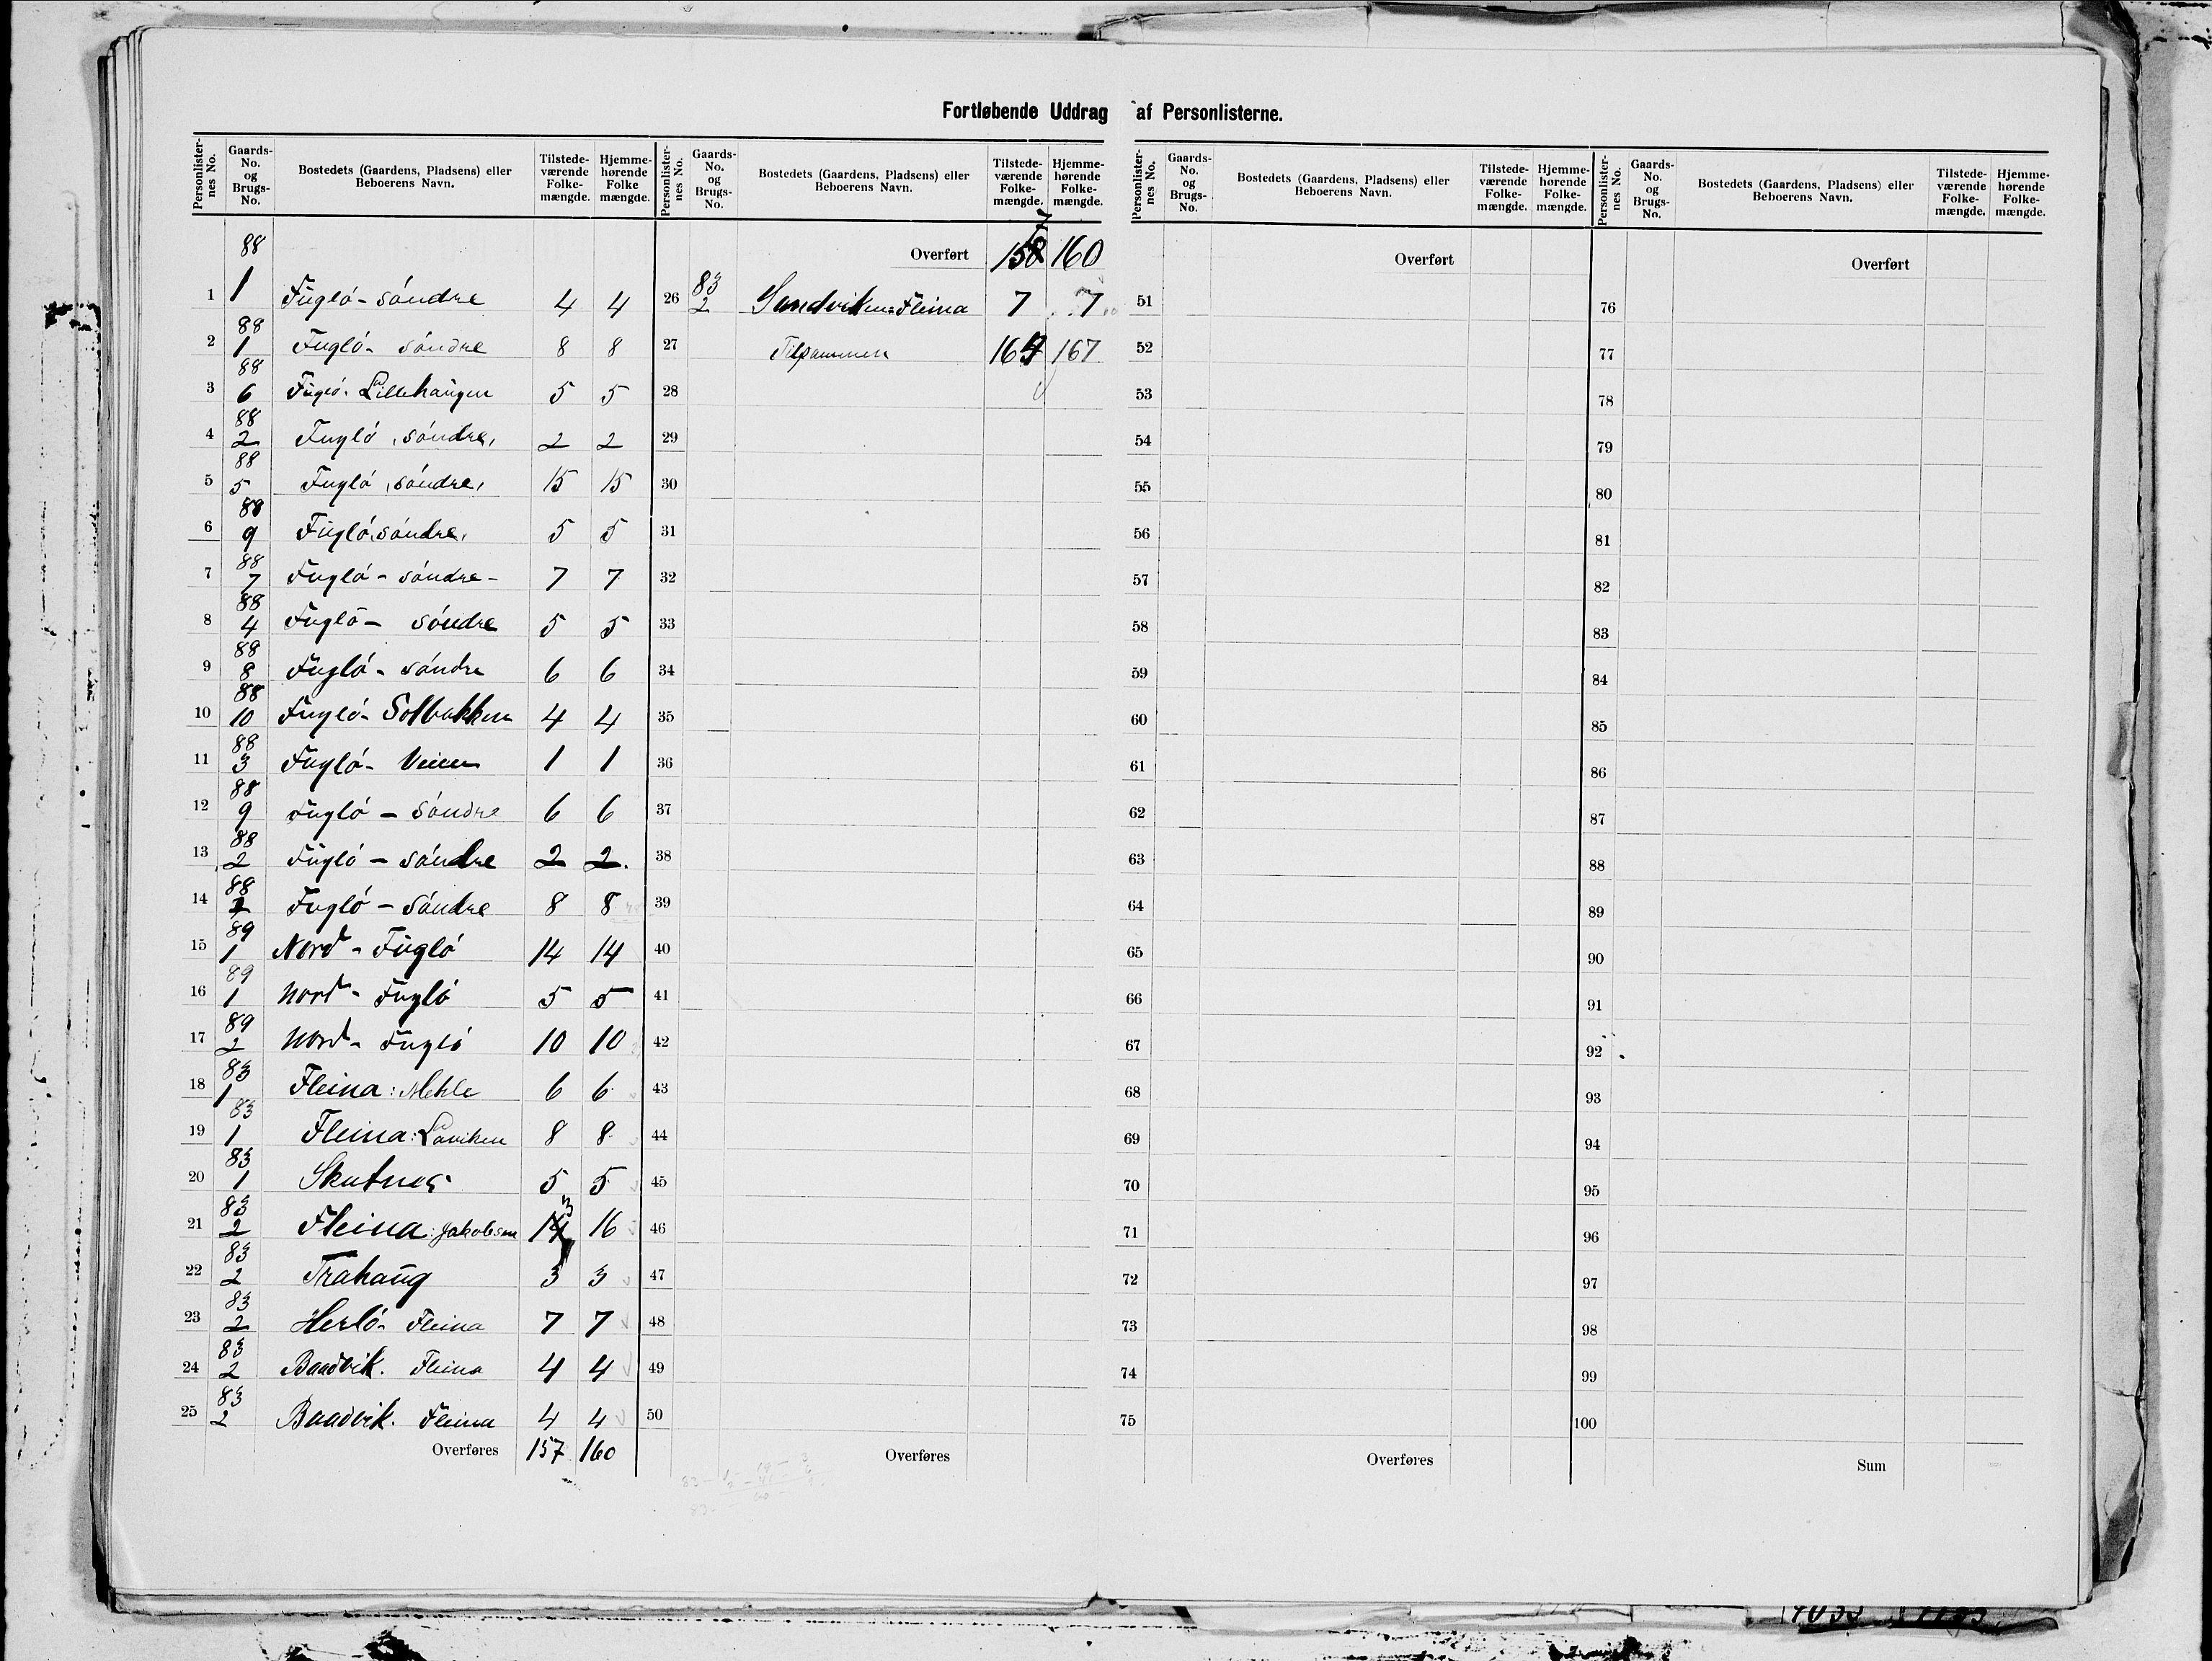 Fortløbende Uddrag af Personlisterne.
Personlisternes No. Gaards-No. og Brugs-No. Bostedets (Gaardens, Pladsens) eller Beboerens Navn. Tilstedeværende Folkemængde. Hjemmehørende Folkemængde.
1 88 1 Fugló - sóndre 4 4
2 88 1 Fugló - sóndre 8 8
3 88 6 Fugló. Lillehaugen 5 5
4 88 2 Fugló, sóndre, 2 2
5 88 5 Fugló, sóndre, 15 15
6 88 9 Fugló, sóndre, 5 5
7 88 7 Fugló - sóndre - 7 7
8 88 4 Fugló - sóndre 5 5
9 88 8 Fugló - sóndre 6 6
10 88 10 Fugló - Solbakken 4 4
11 88 3 Fugló - Veien 1 1
12 88 9 Fugló - Sóndre 6 6
13 88 2 Fugló - sóndre 2 2.
14 88 Fugló - Sóndre 8 8
15 89 1 Nord - Fugló 14 14
16 89 1 Nord - Fugló 5 5
17 89 2 Nord - Fugló 10 10
18 83 1 Fleina: Mehle 6 6
19 83 1 Fleina: Laviken 8 8
20 83 1 Skutnes 5 5
21 83 2 Fleina: Jakobsen 13 16
22 83 2 Trahaug 3 3
23 83 2 Herló - Fleina 7 7
24 83 2 Baadvik. Fleina 4 4
25 83 2 Baadvik. Fleina 4 4
Overføres 157 160
Personlisternes No. Gaards-No. og Brugs-No. Bostedets (Gaardens, Pladsens) eller Beboerens Navn. Tilstedeværende Folkemængde. Hjemmehørende Folkemængde.
Overført 157 160
26 83 2 Sandviken: Fleina 7 7
27 Tilsammen 164 167
28
29
30
31
32
33
34
35
36
37
38
39
40
41
42
43
44
45
46
47
48
49
50
Overføres
Personlisternes No. Gaards-No. og Brugs-No. Bostedets (Gaardens, Pladsens) eller Beboerens Navn. Tilstedeværende Folkemængde. Hjemmehørende Folkemængde.
Overført
51
52
53
54
55
56
57
58
59
60
61
62
63
64
65
66
67
68
69
70
71
72
73
74
75
Overføres
Personlisternes No. Gaards-No. og Brugs-No. Bostedets (Gaardens, Pladsens) eller Beboerens Navn. Tilstedeværende Folkemængde. Hjemmehørende Folkemængde.
Overført
76
77
78
79
80
81
82
83
84
85
86
87
88
89
90
91
92
93
94
95
96
97
98
99
100
Sum